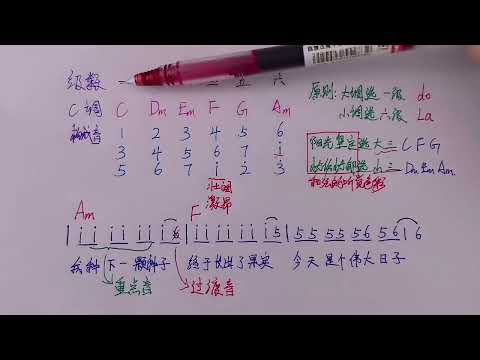 级数 一 二 五 六
原则:大调选一级 do
小调选六级 La
C调 C Dm Em F G Am
组成音 1 2 3 4 5 6
3 4 5 6 7 i
5 6 7 i 2 3
阳光坚定选大三 C F G
选小三 Dm Em Am
和弦的听觉色彩
壮阔
凝聚
Am F
| i i i i i i 6 | i i i i i i 5 | 5 5 5 5 5 6 5 6 | 6
下一颗种子 终于长出了果实 今天是个伟大日子
重点音 过渡音